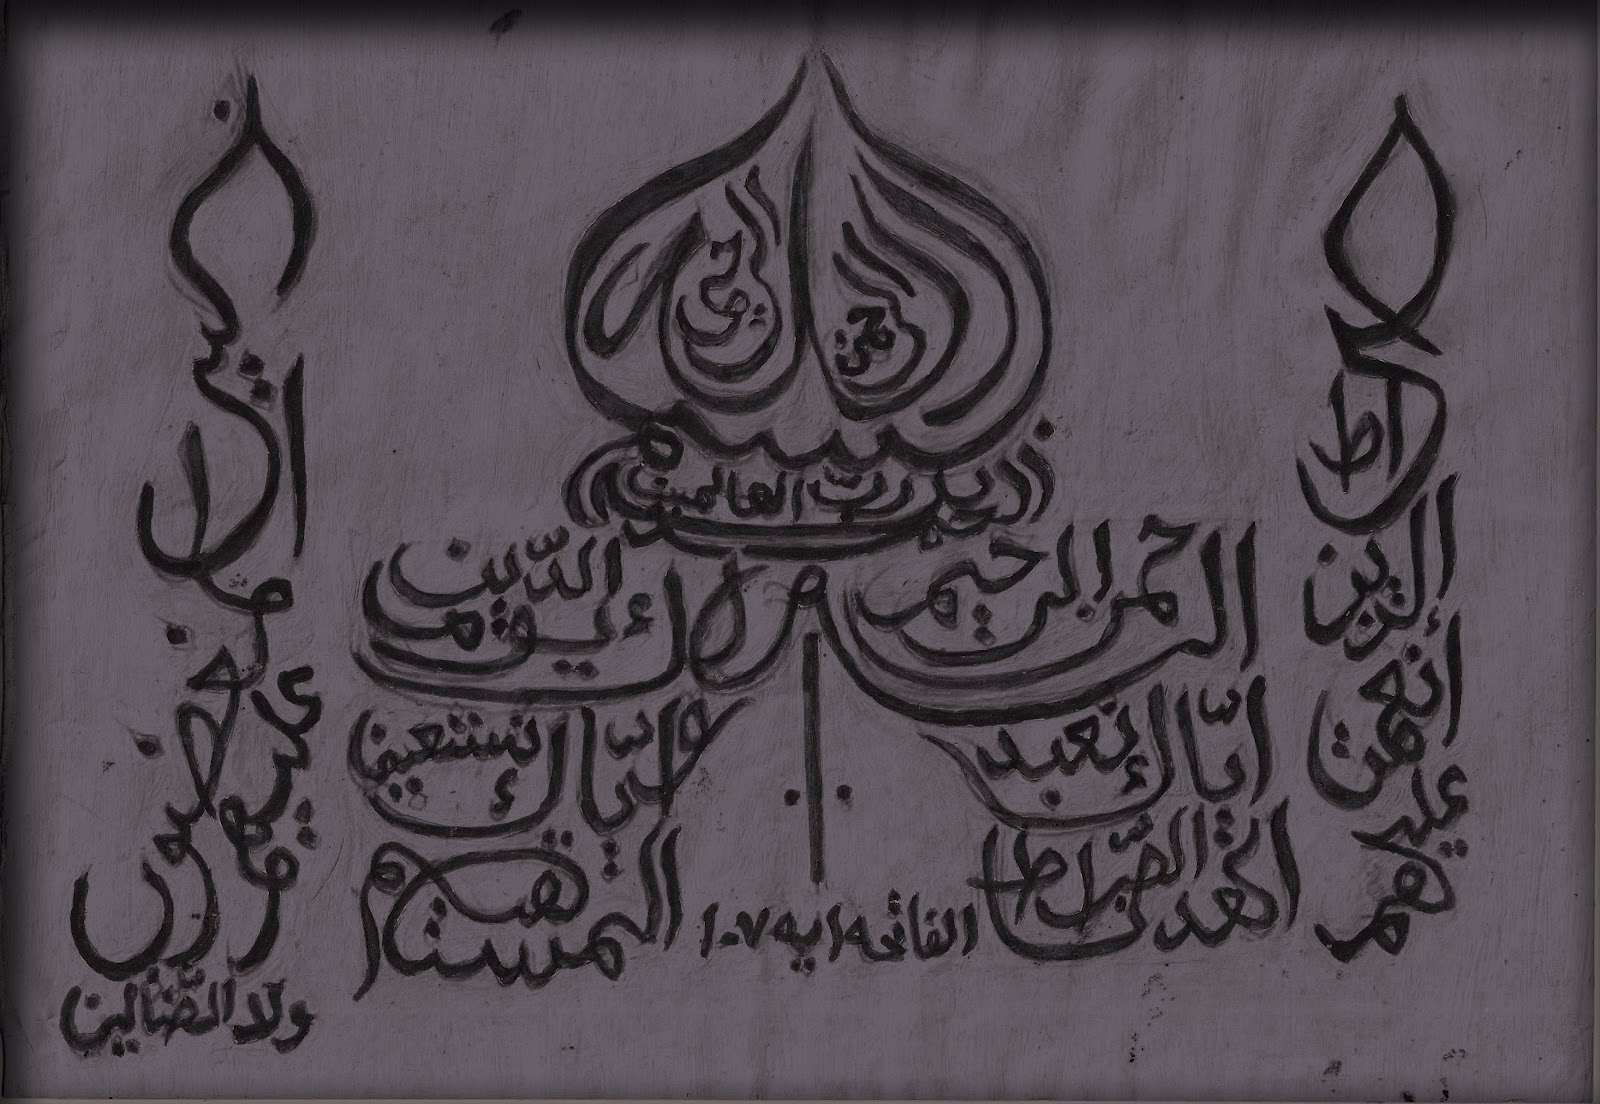 بسم الله الرحمن الرحيم
الحمد لله ربّ العالمين
الرحمن الرحيم
ملك إيوم الدّين
ايّاك نعبد
وايّاك نستعين
اهدنا الصّراط
المستقيم
صراط
الذين
أنعمت
عليهم
غير المغضوب
عليهم
ولا الضّالين
الفاتحه ايه ٧-١